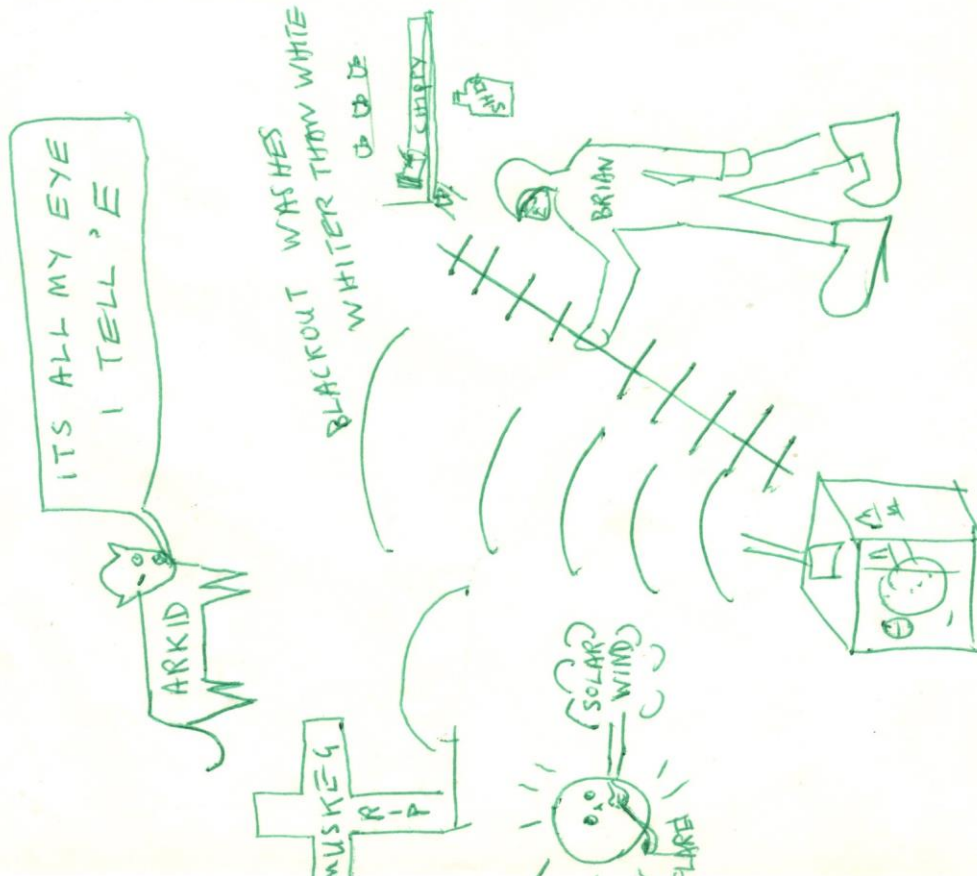 ITS ALL MY EYE
I TELL 'E
ARKID
BLACKOUT WASHES
WHITER THAN WHITE
EMPTY
BRIAN
MUSKEG
R-I-P
SOLAR
WIND
FLARE